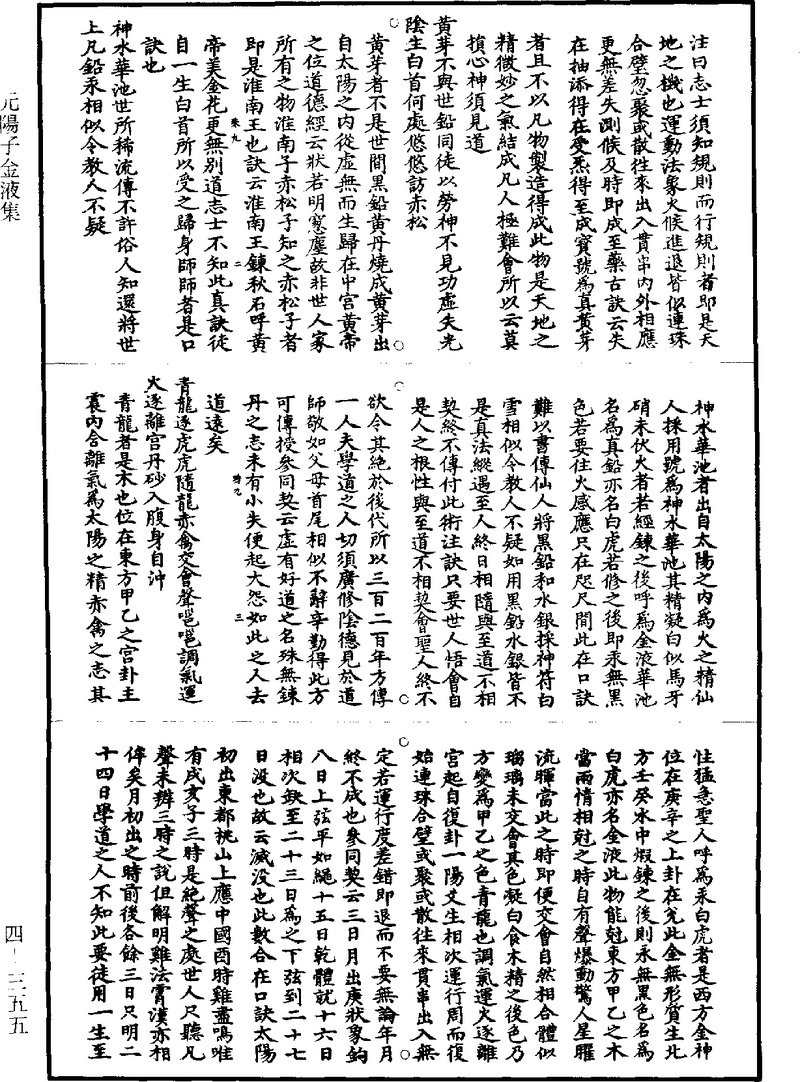 元陽子金液集
注曰志士須知規則而行規則者即是天
地之機也運動法象火候進退皆似連珠
合璧忽聚或散往來出入貫串內外相應
更無差失測候及時即成至藥古訣云失
在抽添得在受炁得至成寶號為真黃芽
者且不以凡物製造得成此物是天地之
精微妙之氣結成凡人極難會所以云莫
損心神須見道
黃芽不與世鉛同徒以勞神不見功虛失光
陰生白首何處悠悠訪赤松
黃芽者不是世間黑鉛黃丹燒成黃芽出
自太陽之內從虛無而生歸在中宮黃帝
之位道德經云狀若明窻塵故非世人家
所有之物淮南子赤松子知之赤松子者
即是淮南王也訣云淮南王鍊秋石呼黃
帝美金花更無別道志士不知此真訣徒
自一生白首所以受之歸身師師者是口
訣也
神水華池世所稀流傳不許俗人知還將世
上凡鉛汞相似令教人不疑
神水華池者出自太陽之內為火之精仙
人採用號為神水華池其精凝白似馬牙
硝未伏火者若經鍊之後呼為金液華池
名為真鉛亦名白虎若修之後即汞無黑
色若要往火感應只在咫尺間此在口訣
難以書傳仙人將黑鉛和水銀採神符白
雪相似令教人不疑如用黑鉛水銀皆不
是真法縱遇至人終日相隨與至道不相
契終不傳付此術注訣只要世人悟會自
是人之根性與至道不相契會聖人終不
欲令其絕於後代所以三百二百年方傳
一人夫學道之人切須廣修陰德見於道
師敬如父母首尾相似不辭辛勤得此方
可傳授參同契云虛有好道之名殊無鍊
丹之志未有小失便起大怨如此之人去
道遠矣
青龍逐虎虎隨龍赤禽交會聲嗈嗈調氣運
火逐離宮丹砂入腹身自沖
青龍者是木也位在東方甲乙之宮卦主
震內含離氣為太陽之精赤禽之志其
性猛急聖人呼為汞白虎者是西方金神
位在庚辛之上卦在兌此金無形質生北
方壬癸水中煆鍊之後則永無黑色名為
白虎亦名金液此物能尅東方甲乙之木
當兩情相尅之時自有聲爆動驚人星曜
流暉當此之時即便交會自然相合體似
瑠璃未交會其色凝白食木精之後色乃
方變為甲乙之色青龍也調氣運火逐離
宮起自復卦一陽爻生相次運行周而復
始連珠合璧或聚或散往來貫串出入無
定若運行度差錯即退而不要無論年月
終不成也參同契云三日月出庚狀象鉤
八日上弦平如繩十五日乾體就十六日
相次缺至二十三日為之下弦到二十七
日沒也故云滅沒也此數合在口訣太陽
初出東都桃山上應中國酉時雞盡鳴唯
有戌亥子三時是絕聲之處世人只聽凡
聲未辨三時之說但解明雞法霄漢亦相
侔矣月初出之時前後各餘三日只明二
十四日學道之人不知此要徒用一生至
四-二五五